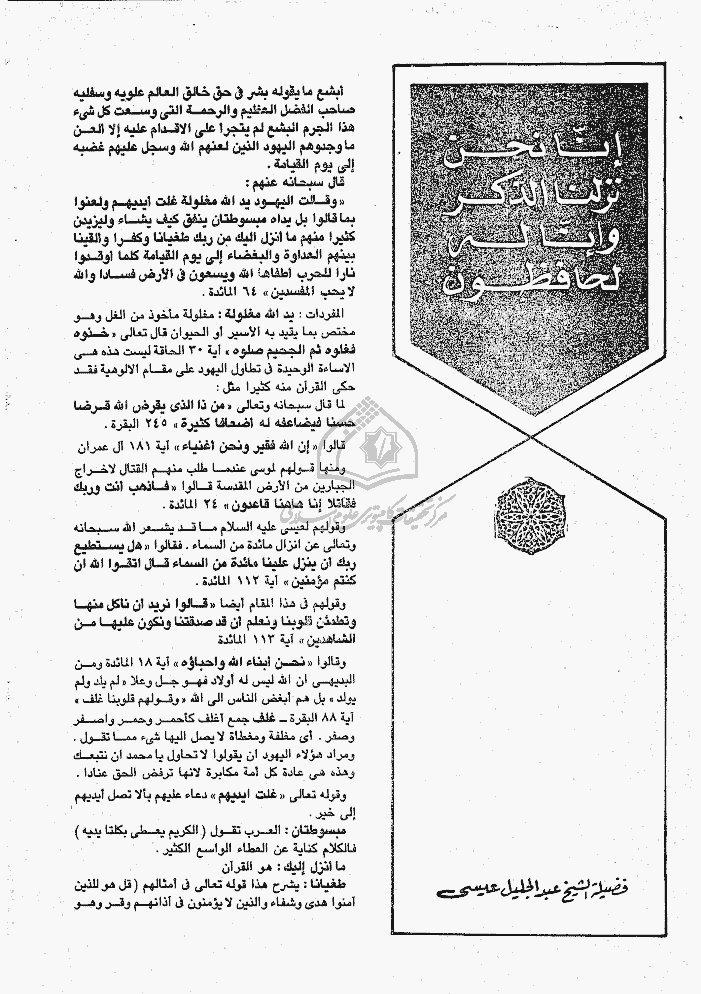 إنّا نحن
نزلنا الذكر
وإنّا له
لحافظون
فضيلة الشيخ عبد الجليل عيسى
أبشع ما يقوله بشر فى حق خالق العالم علويه وسفليه
صاحب الفضل العظيم والرحمة التى وسعت كل شىء
هذا الجرم البشع لم يتجرأ على الاقدام عليه إلا ألعن
ما وجدوهم اليهود الذين لعنهم الله وسجل عليهم غضبه
إلى يوم القيامة .
قال سبحانه عنهم :
« وقالت اليهود يد الله مغلولة غلت أيديهم ولعنوا
بما قالوا بل يداه مبسوطتان ينفق كيف يشاء وليزيدن
كثيرا منهم ما أنزل اليك من ربك طغيانا وكفرا وألقينا
بينهم العداوة والبغضاء إلى يوم القيامة كلما أوقدوا
نارا للحرب أطفأها الله ويسعون فى الأرض فسادا والله
لا يحب المفسدين » ٦٤ المائدة .
المفردات : يد الله مغلولة : مغلولة مأخوذ من الغل وهو
مختص بما يقيد به الأسير أو الحيوان قال تعالى « خذوه
فغلوه ثم الجحيم صلوه » آية ٣٠ الحاقة ليست هذه هى
الاساءة الوحيدة فى تطاول اليهود على مقام الالوهية فقد
حكى القرآن منه كثيرا مثل :
لما قال سبحانه وتعالى « من ذا الذى يقرض الله قرضا
حسنا فيضاعفه له أضعافا كثيرة » ٢٤٥ البقرة .
قالوا « إن الله فقير ونحن أغنياء » آية ١٨١ آل عمران
ومنها قولهم لموسى عندما طلب منهم القتال لاخراج
الجبارين من الأرض المقدسة قالوا « فاذهب أنت وربك
فقاتلا إنا هاهنا قاعدون » ٢٤ المائدة .
وقولهم لعيسى عليه السلام ما قد يشعر الله سبحانه
وتعالى عن انزال مائدة من السماء . فقالوا « هل يستطيع
ربك أن ينزل علينا مائدة من السماء قال اتقوا الله ان
كنتم مؤمنين » آية ١١٢ المائدة .
وقولهم فى هذا المقام أيضا « قالوا نريد أن نأكل منها
وتطمئن قلوبنا ونعلم أن قد صدقتنا ونكون عليها من
الشاهدين » آية ١١٣ المائدة
وقالوا « نحن أبناء الله وأحباؤه » آية ١٨ المائدة ومن
البديهى أن الله ليس له أولاد فهو جل وعلا « لم يلد ولم
يولد » بل هم أبغض الناس الى الله « وقولهم قلوبنا غلف »
آية ٨٨ البقرة ــ غلف جمع أغلف كأحمر وحمر واصفر
وصفر . أى مغلفة ومغطاة لا يصل اليها شىء مما تقول .
ومراد هؤلاء اليهود ان يقولوا لا تحاول يا محمد ان نتبعك
وهذه هى عادة كل أمة مكابرة لانها ترفض الحق عنادا .
وقوله تعالى « غلت ايديهم » دعاء عليهم بألا تصل أيديهم
إلى خير .
مبسوطتان : العرب تقول ( الكريم يعطى بكلتا يديه )
فالكلام كناية عن العطاء الواسع الكثير .
ما أنزل إليك : هو القرآن
طغيانا : يشرح هذا قوله تعالى فى أمثالهم ( قل هو للذين
آمنوا هدى وشفاء والذين لا يؤمنون فى آذانهم وقر وهو